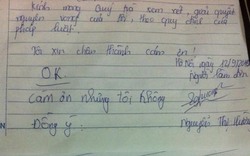 kính mong Quý tòa xem xét, giải quyết
nguyện vọng của tôi, theo quy chế của
pháp luật.
Tôi xin chân thành cảm ơn!
Hà Nội ngày 12/9/
Người làm đơn
OK
Cảm ơn nhưng tôi không
Đồng ý.
Nguyễn Thị Hương